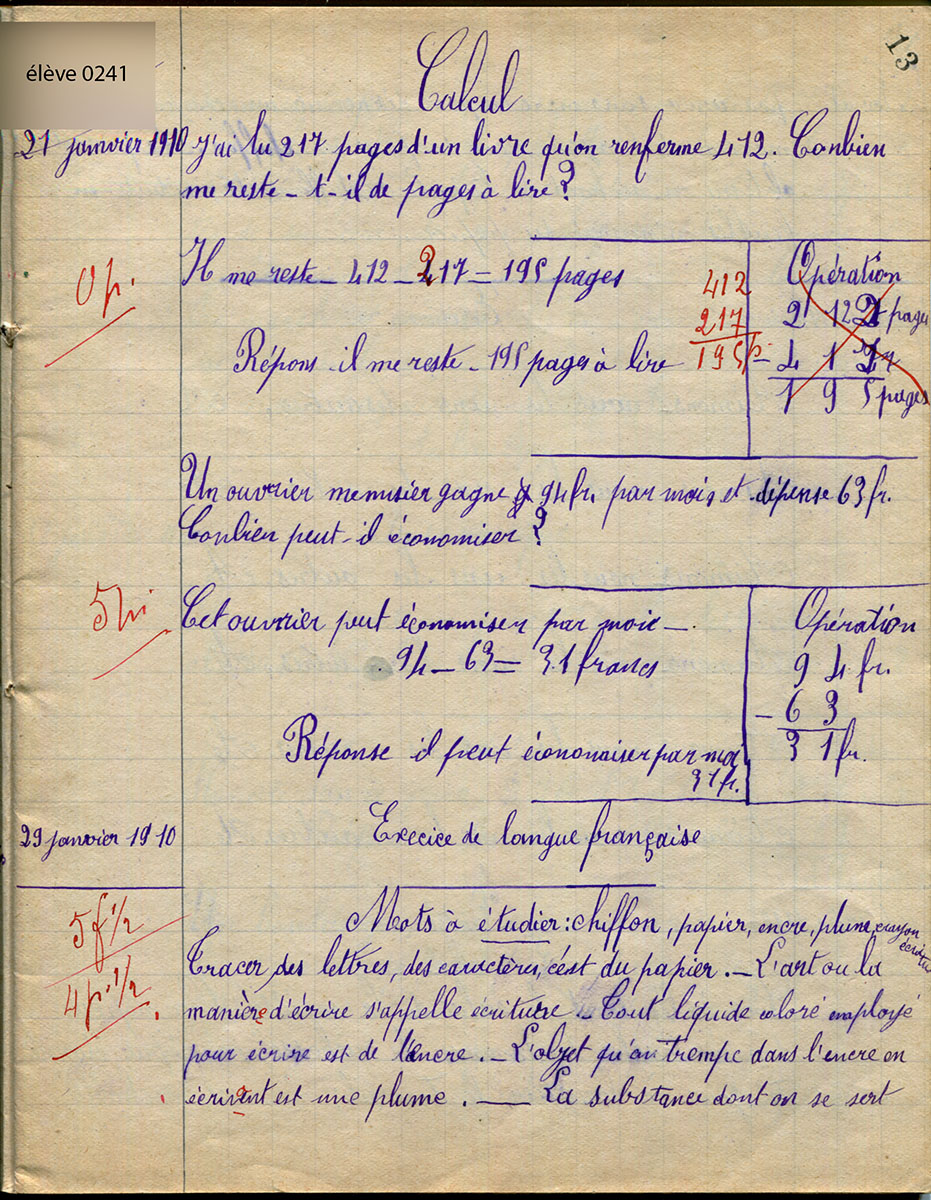 élève 0241
13
Calcul
21 janvier 1910 J'ai lu 217 pages d'un livre qu'on renferme 412. Conbien
me reste-t-il de pages à lire ?
0 p.
Il me reste - 412 - 217 = 195 pages
Répons il me reste - 195 pages à lire
412
217
195 p.
Opération
2 12 pages
- 4 1
1 9 5 pages
Un ouvrier menusier gagne 94 fr. par mois et dépense 63 fr.
Conbien peut-il économiser ?
Cet ouvrier peut économiser par mois -
94 - 63 = 31 francs
Réponse il peut économiser par moi
31 fr.
Opération
9 4 fr.
- 6 3
3 1 fr.
29 janvier 1910
Execice de langue française
5 f 1/2
4 p. 1/2
Mots à étudier : chiffon, papier, encre, plune, crayon
Tracer des lettres, des caractères, c'est du papier. - L'art ou la
manière d'écrire s'appelle écriture - Tout liquide coloré employé
pour écrire est de l'encre. - L'objet qu'on trempe dans l'encre en
écrivent est une plume. - La substance dont on se sert